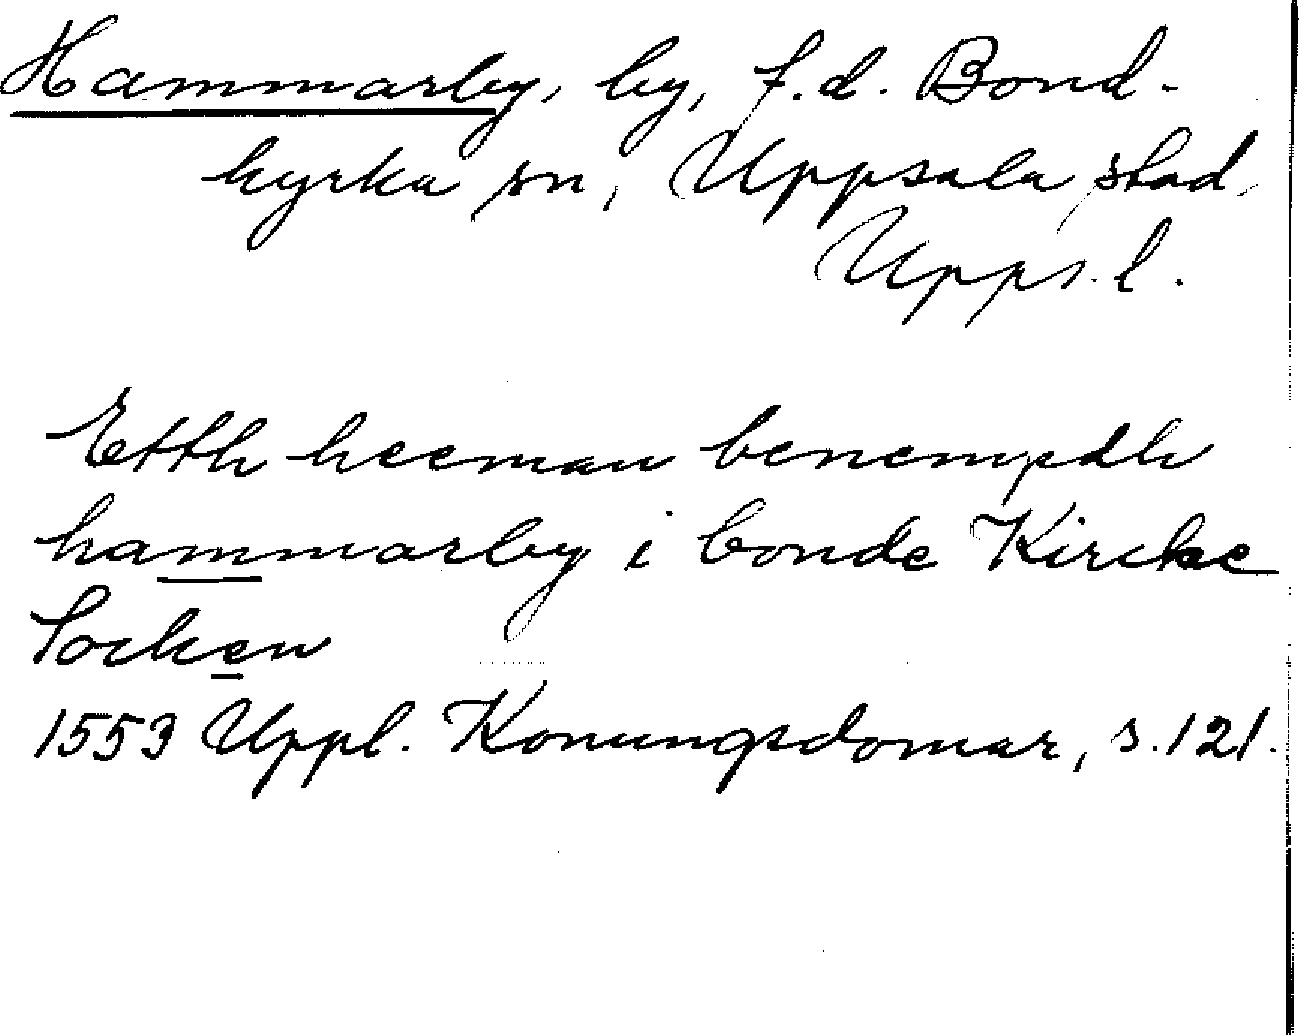 Hammarby, by, f.d. Bond-
kyrka sn, Uppsala stad,
Upps. l.
Etth heeman benempdh
hammarby i bonde Kircke
Socken
1553 Uppl. Konungsdomar, s. 121.